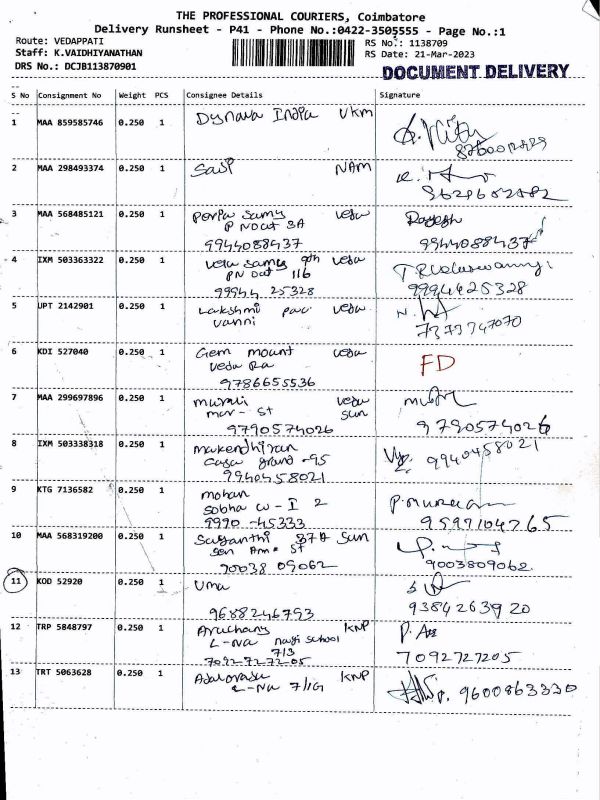 THE PROFESSIONAL COURIERS, Coimbatore
Delivery Runsheet - P41 - Phone No.:0422-3505555 - Page No.:1
Route: VEDAPPATI RS No.: 1138709
Staff: K.VAIDHIYANATHAN RS Date: 21-Mar-2023
DRS No.: DCJB113870901 DOCUMENT DELIVERY
S No Consignment No Weight PCS Consignee Details Signature
1 MAA 859585746 0.250 1 India VKM
2 MAA 298493374 0.250 1 NAM
3 MAA 568485121 0.250 1 Samy Veda Rajesh
3A
9944088437 9944088437
4 IXM 503363322 0.250 1 Veda Samy 9th Veda
116
99944 25328 9994425328
5 UPT 2142901 0.250 1 Lakshmi Veda
Vanni 7373747070
6 KDI 527040 0.250 1 Gem mount Veda FD
Veda Ra
9786655536
7 MAA 299697896 0.250 1 Murali Veda
mar - St Sun
9790574026 9790574026
8 IXM 503338318 0.250 1 Makendhiran
Casa grand -95 9940458021
9940458021
9 KTG 7136582 0.250 1 mohan
Sobha W - I 2
9990 -45333
10 MAA 568319200 0.250 1 87A Sun
St
90038 09062 9003809062.
11 KOD 52920 0.250 1 Uma
9688246793 9384263920
12 TRP 5848797 0.250 1 KNP
L-Na School
7/3
7092727205 7092727205
13 TRT 5063628 0.250 1 KNP
L-Na 7/1G 9600863330